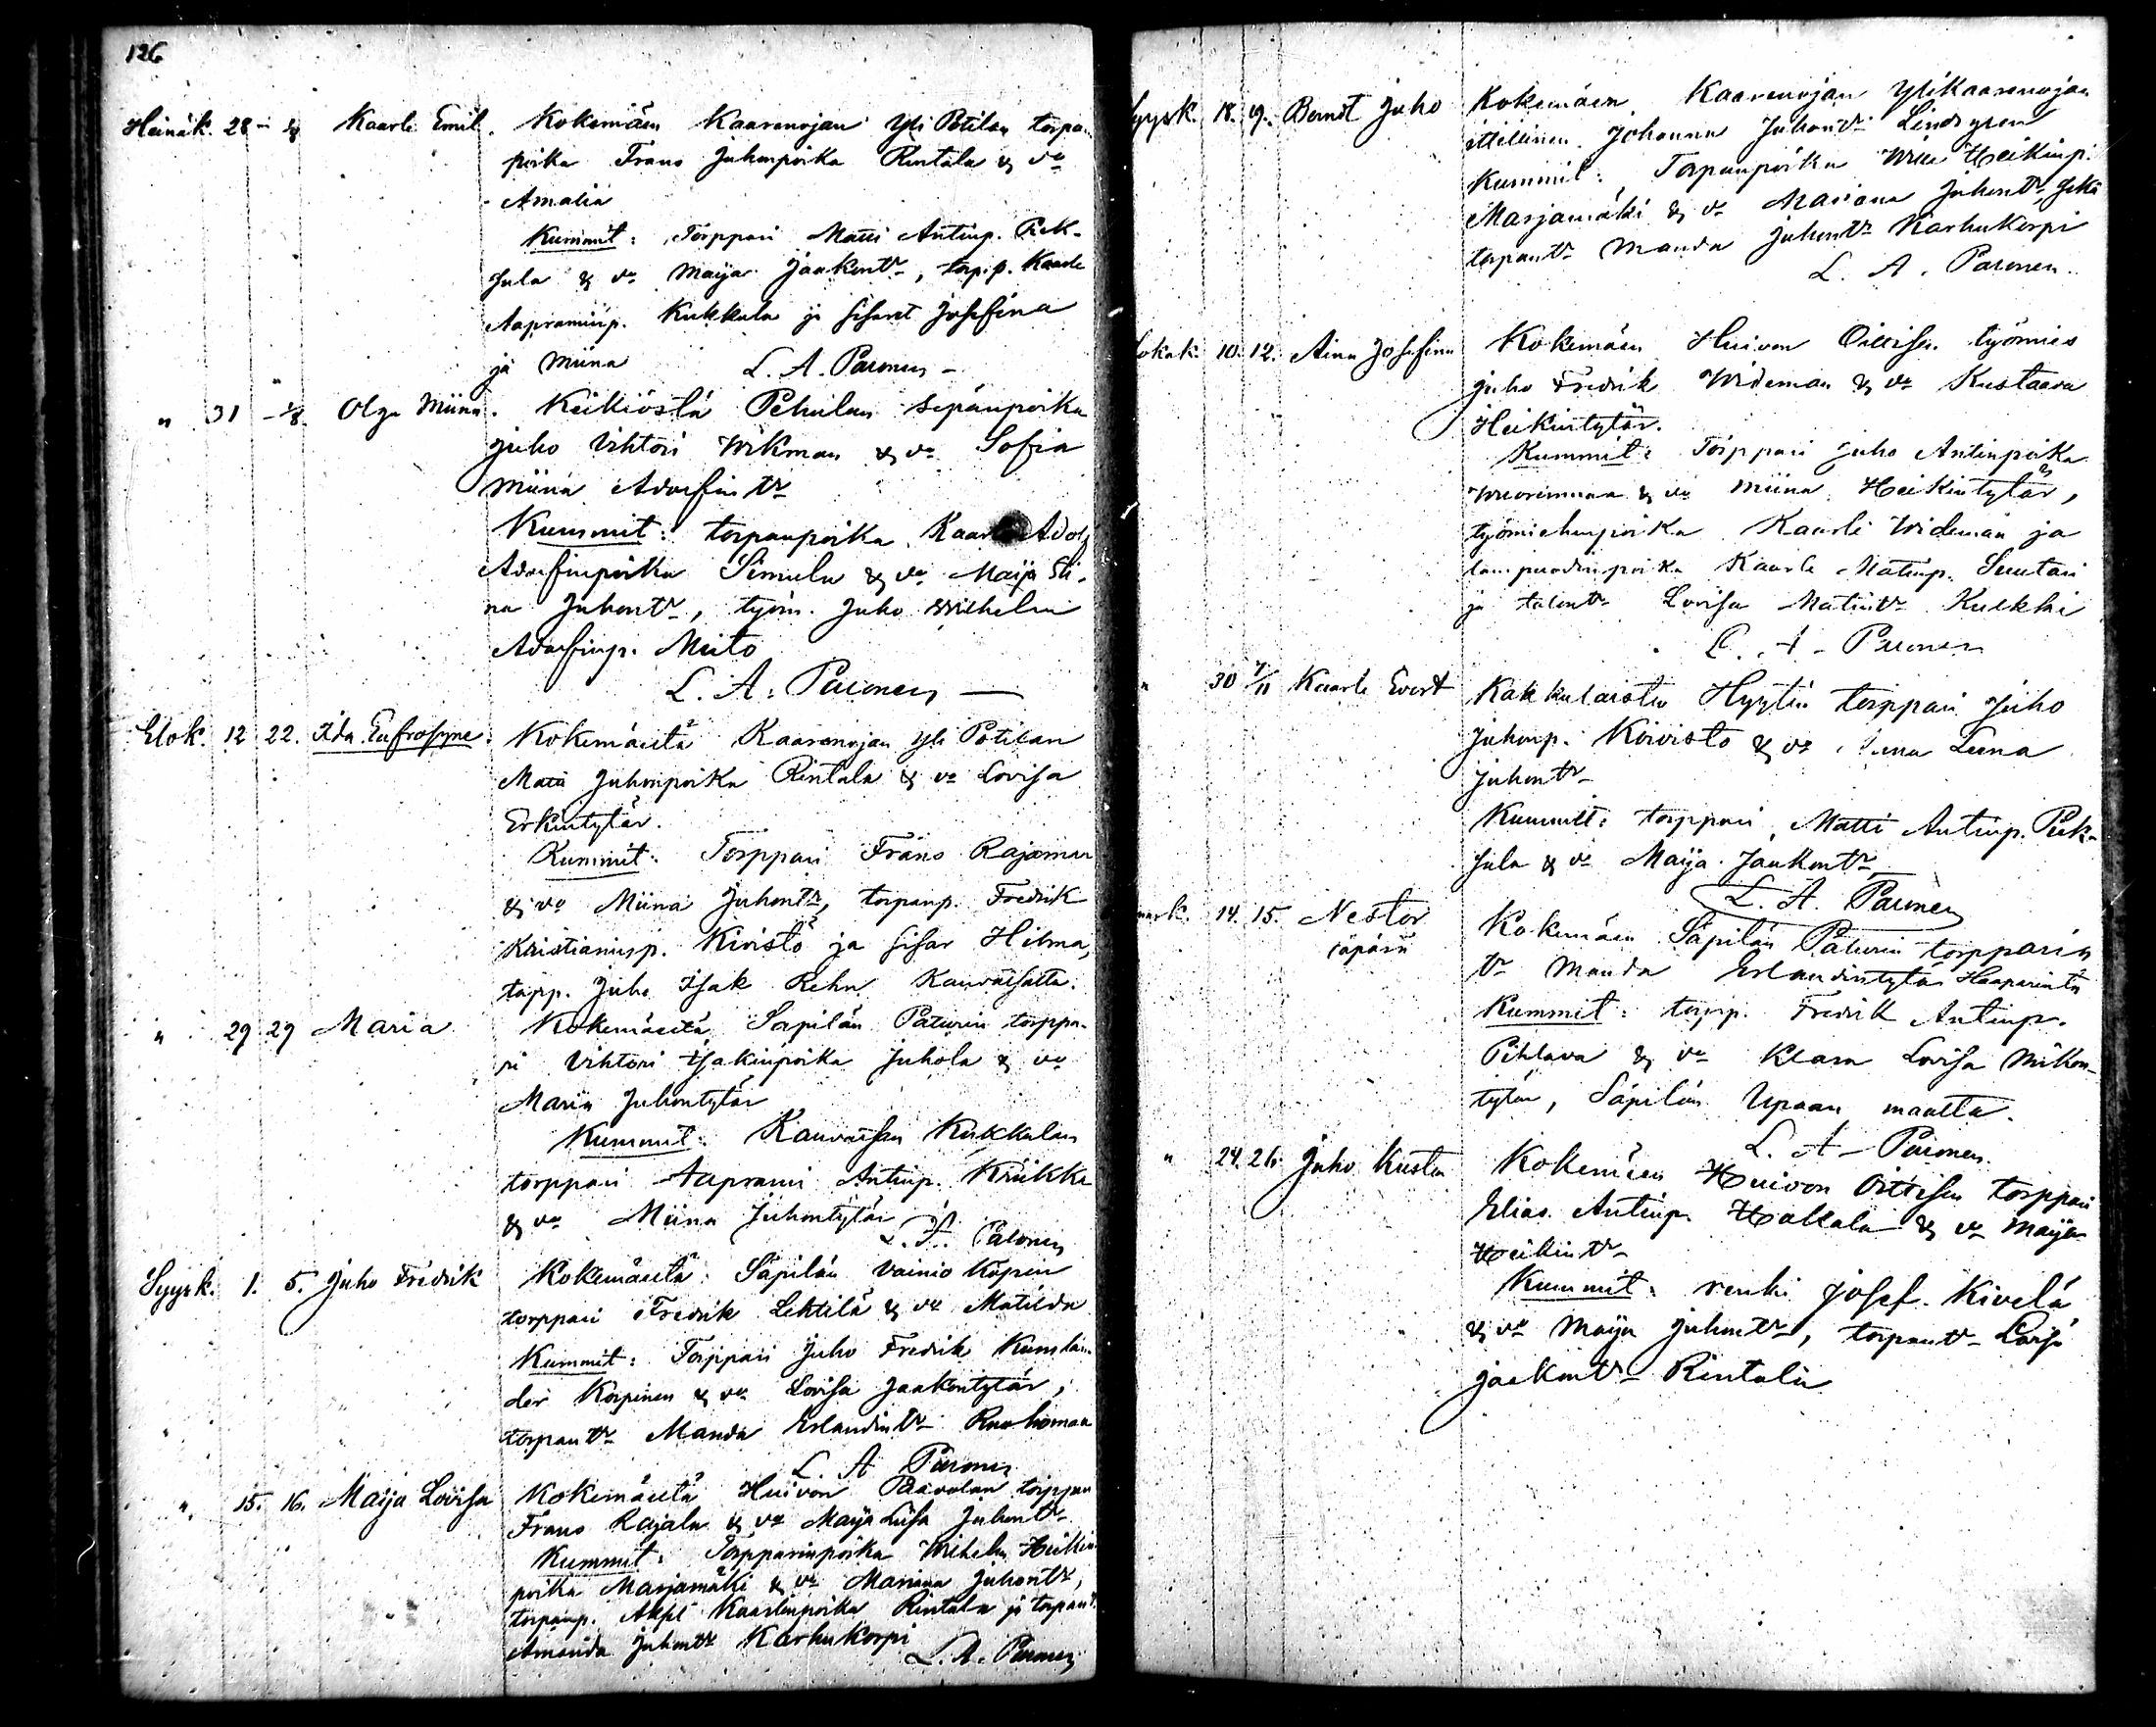 126
Heinäk. 28 – 1/8 Kaarle Emil. Kokemäen Kaarenojan Yli Potilan torpan
poika Frans Juhonpoika Rintala & va
Amalia
Kummit: Torppari Matti Antinp. Piek-
sula & va Maija Jaakontr, torp.p. Kaarle
Aapraminp. Kukkula ja sisaret Josefina
ja Miina L. A. Paronen –
" 31 – 1/8. Olga Miina. Keikiöstä Pehulan sepänpoika
Juho Vihtori Wikman & va Sofia
Miina Adolfintr
Kummit: torpanpoika Kaarle Adolf
Adolfinpoika Simula & va Maija Sti-
na Juhontr, työm. Juho Wilhelm
Adolfinp. Meito
L. A. Paronen —
Elok. 12 22. Ida Eufrosyne. Kokemäeltä Kaarenojan Yli Potilan
Matti Juhonpoika Rintala & va Lovisa
Erkintytär.
Kummit: Torppari Frans Rajamaa
& va Miina Juhontr, torpanp. Fredrik
Kristianinp. Kivistö ja sisar Hilma,
torpp. Juho Isak Rehn Kauvatsalta.
" 29 29 Maria Kokemäeltä Säpilän Paturin torppa-
ri Vihtori Isakinpoika Juhola & va
Maria Juhontytär
Kummit: Kauvatsan Kukkulan
torppari Aaprami Antinp. Kriikku
& va Miina Juhontytär L. A. Paronen
Syysk. 1. 5. Juho Fredrik Kokemäeltä: Säpilän Vainio Käpin
torppari Fredrik Lehtilä & va Matilda
Kummit: Torppari Juho Fredrik Kumlan-
der Korpinen & va Lovisa Jaakontytär,
torpantr Manda Erlandintr Ruohomaa
L. A Paronen
" 15. 16. Maija Lovisa Kokemäeltä Huivon Paavolan torppari
Frans Rajala & va Maija Liisa Juhontr
Kummit: Torpparinpoika Wilhelm Heikin
poika Marjamäki & va Mariana Juhontr,
torpanp. Aksel Kaarlenpoika Rintala ja torpant.
Amanda Juhontr Karhukorpi
L. A. Paronen
Syysk. 18. 19. Berndt Juho Kokemäen Kaarenojan Ylikaarenojan
itsellinen Johanna Juhontr Lindgren
Kummit: Torpanpoika Wille Heikinp.
Marjamäki & va Mariana Juhontr, sekä
torpantr Manda Juhontr Karhukorpi
L. A. Paronen.
Lokak. 10. 12. Aina Josefina Kokemäen Huivon Oittisen työmies
Juho Fredrik Wideman & va Kustaava
Heikintytär.
Kummit: Torppari Juho Antinpoika
Wuorenmaa & va Miina Heikintytär,
työmiehenpoika Kaarle Wideman ja
lampuodinpoika Kaarle Matinp. Suutari
ja talontr Lovisa Matintr Kulkki
L. A – Paronen
" 30 7/11 Kaarle Evert Kakkulaisten Hyytin torppari Juho
Juhonp. Koivisto & va Leena
Juhontr
Kummit: torppari Matti Antinp. Piek-
sula & va Maija Jaakontr
L. A. Paronen
marrask. 14. 15. Nestor Kokemäen Säpilän Paturin torpparin
äpärä tr Manda Erlandintytär Haaparinta
Kummit: torpp. Fredrik Antinp.
Pihlava & va Klara Lovisa Mikon-
tytär, Säpilän Upaan maalta.
L. A – Paronen.
" 24. 26. Juho Kustaa Kokemäen Huivon Oittisen torppari
Elias Antinp. Hakala & va Maija
Heikintr
Kummit: renki Josef Kivelä
& va Maija Juhontr, torpantr Lovisa
Jaakontr Rintala